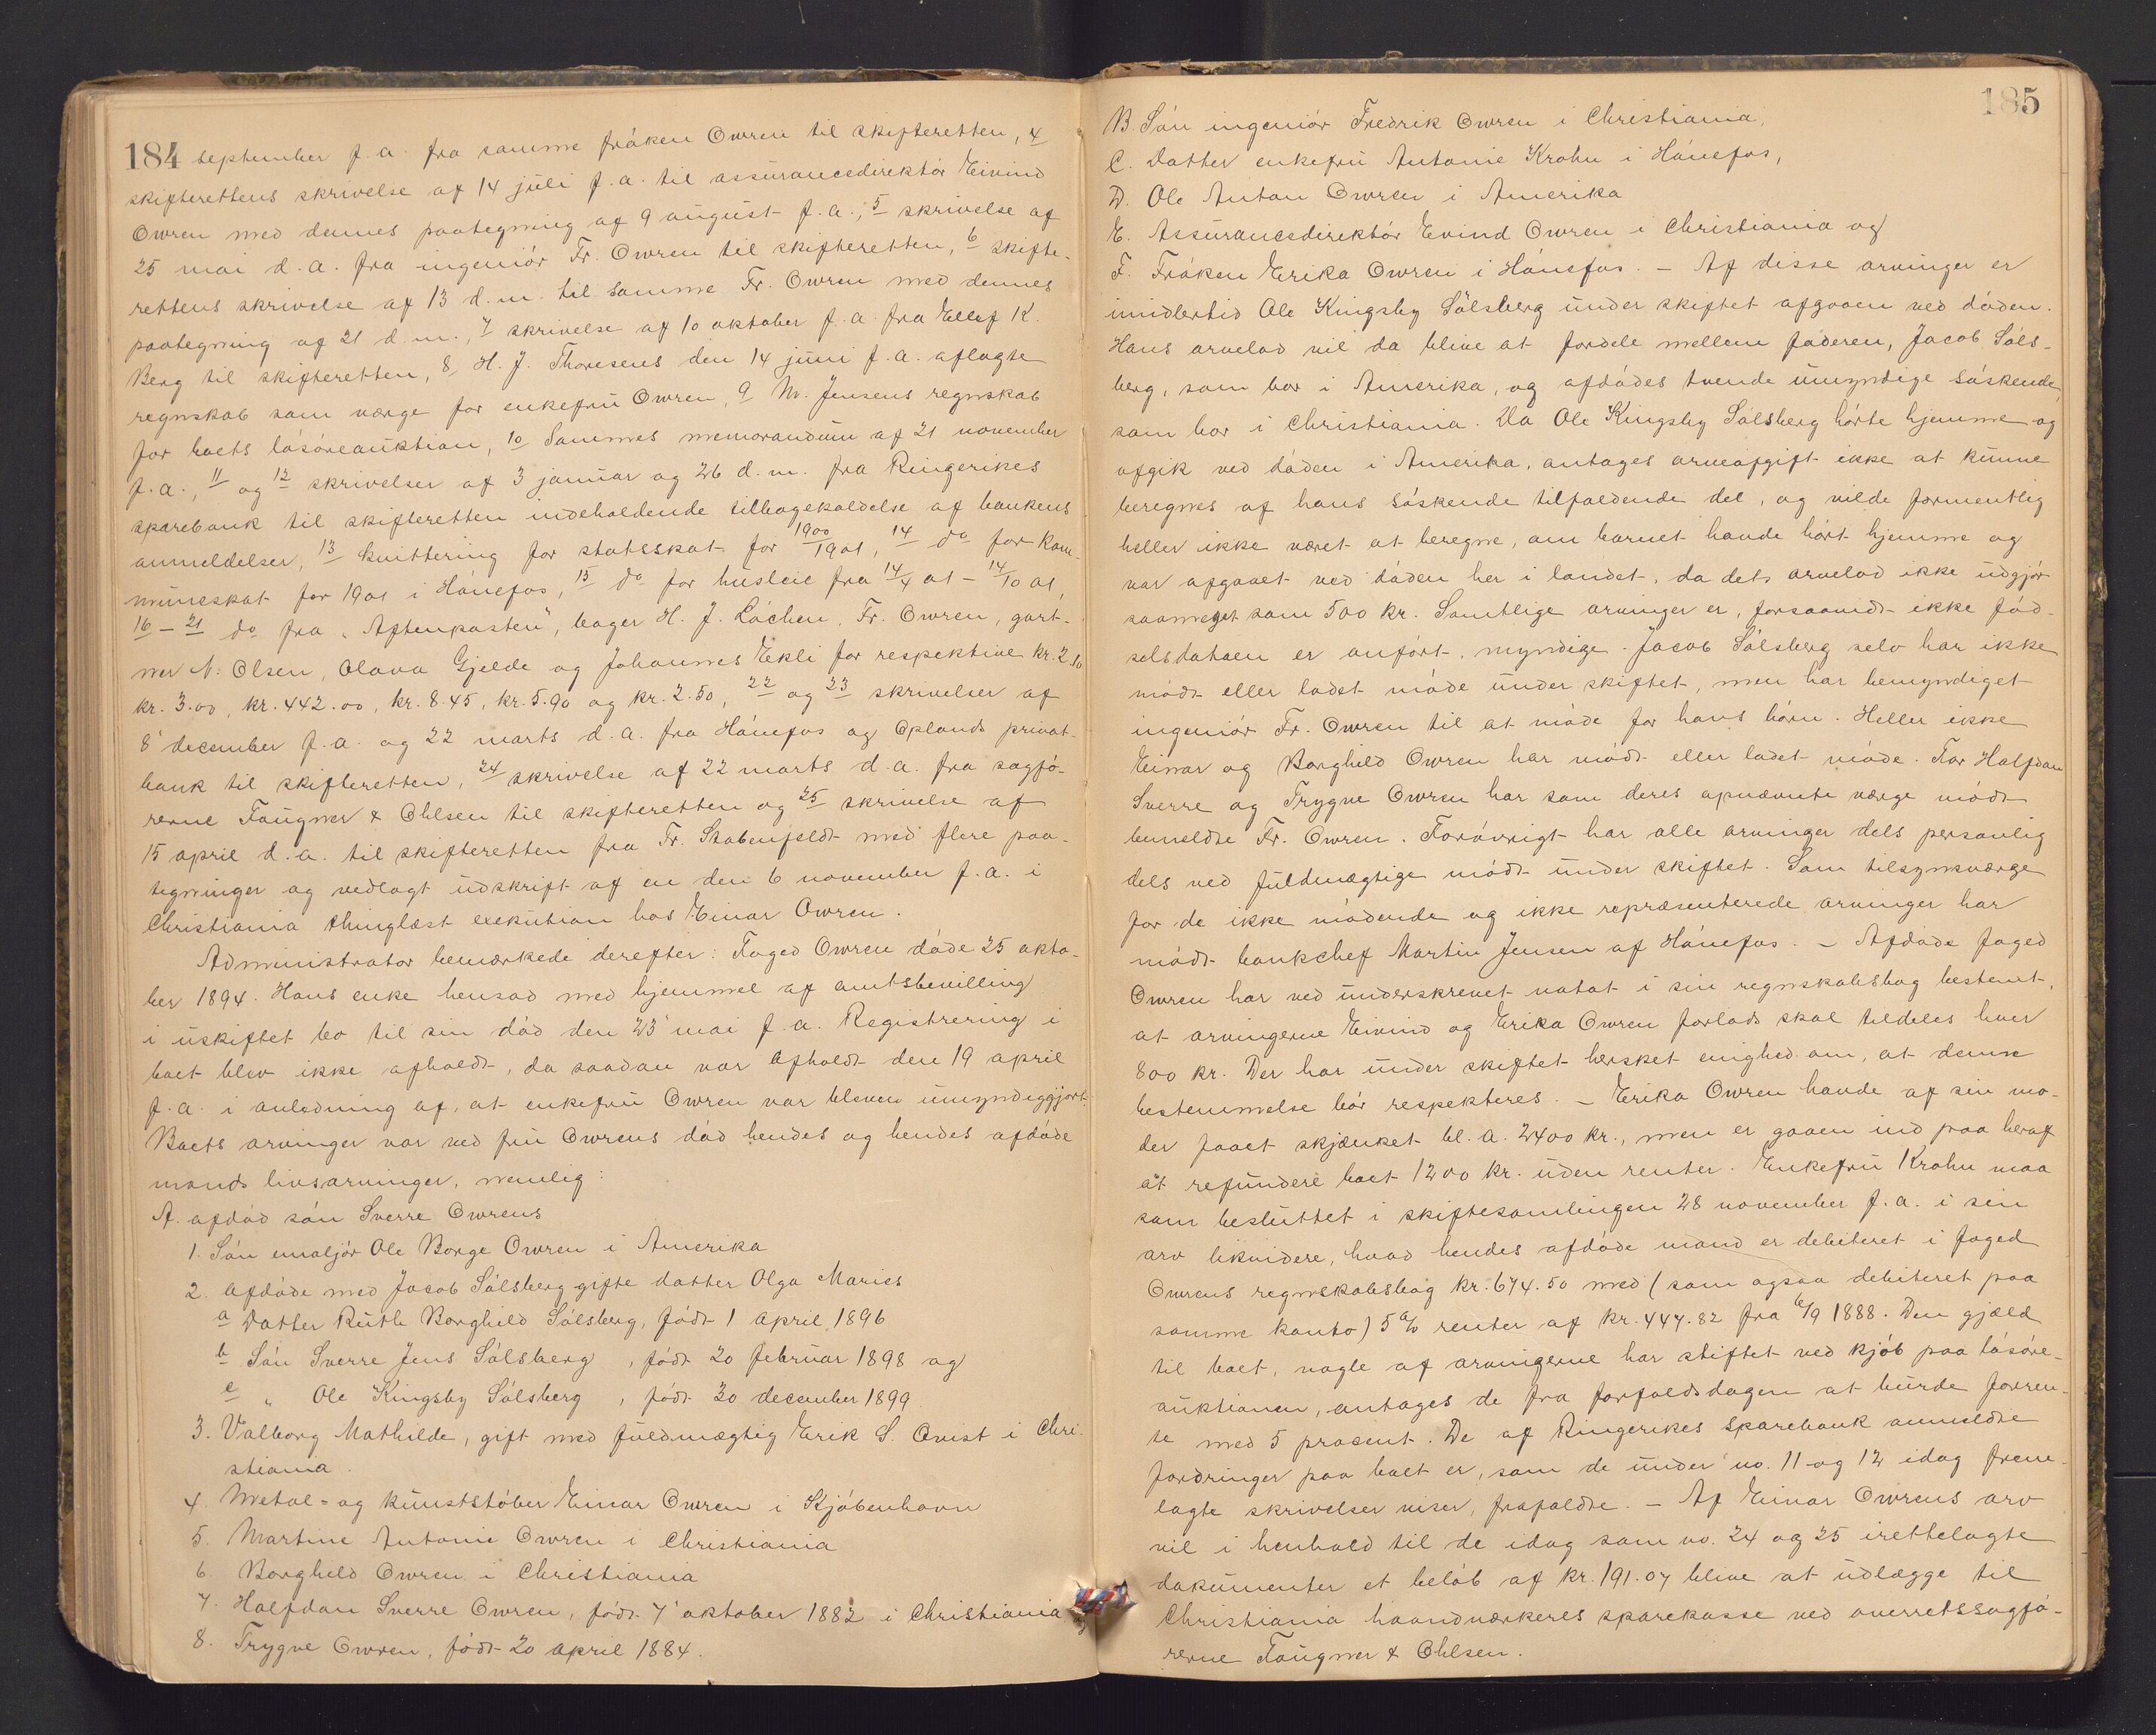 184 september f. a. fra samme fróken Owren til skifteretten, 4
skifterettens skrivelse af 14 juli f. a. til assurancedirektór Eivind
Owren med dennes paategning af 9 august f. a., 5 skrivelse af
25 mai d. a. fra ingeniór Fr. Owren til skifteretten, 6 skifte-
rettens skrivelse af 13 d. m. til samme Fr. Owren med dennes
paategning af 21 d. m., 7 skrivelse af 10 oktober f. a. fra Ellef K.
Berg til skifteretten, 8, H. J. Thoresens den 14 juni f. a. aflagte
regnskab som værge for enkefru Owren, 9 M. Jensens regnskab
for boets lósóreauktion, 10 Sammes memorandum af 21 november
f. a., 11 og 12 skrivelser af 3 januar og 26 d. m. fra Ringerikes
sparebank til skifteretten indeholdende tilbagekaldelse af bankens
anmeldelser, 13 kvittering for statsskat for 1900/1901, 14 do for kom-
muneskat for 1901 i Hónefos, 15 do for husleie fra 14/4 01 - 14/10 01,
16 - 21 do fra "Aftenposten", bager H. J. Lóchen, Fr. Owren, gart-
ner N. Olsen, Olava Gjelde og Johannes Ekli for respektive kr. 2.10
kr. 3.00, kr. 442.00, kr. 8.45, kr. 5.90 og kr. 2.50, 22 og 23 skrivelser af
8 december f. a. og 22 marts d. a. fra Hónefos og Oplands privat-
bank til skifteretten, 24 skrivelse af 22 marts d. a. fra sagfó-
rerne Fougner & Ohlsen til skifteretten og 25 skrivelse af
15 april d. a. til skifteretten fra Fr. Stabenfeldt med flere paa-
tegninger og vedlagt udskrift af en den 6 november f. a. i
Christiania thinglæst exekution hos Einar Owren.
Administrator bemærkede derefter: Foged Owren dóde 25 okto-
ber 1894. Hans enke hensad med hjemmel af amtsbevilling
i uskiftet bo til sin dód den 23 mai f. a. Registrering i
boet blev ikke afholdt, da saadan var afholdt den 19 april
f. a. i anledning af, at enkefru Owren var bleven umyndiggjort.
Boets arvinger var ved fru Owrens dód hendes og hendes afdóde
mands livsarvinger, nemlig:
A. afdód són Sverre Owrens
1. Són emaljór Ole Borge Owren i Amerika
2. Afdóde med Jacob Sólsberg gifte datter Olga Maries
a Datter Ruth Borghild Sólsberg, fódt 1 april 1896
b Són Sverre Jens Sólsberg, fódt 20 februar 1898 og
c " Ole Kingsby Sólsberg, fódt 30 december 1899
3. Valborg Mathilde, gift med fuldmægtig Erik S. Qvist i Chri-
stiania.
4. Metal- og kunststóber Einar Owren i Kjóbenhavn
5. Martine Antonie Owren i Christiania
6. Borghild Owren i Christiania
7. Halfdan Sverre Owren, fódt 7 oktober 1882 i Christiania
8. Trygve Owren, fódt 20 april 1884.
185
B. Són ingeniór Fredrik Owren i Christiania,
C. Datter enkefru Antonie Krohn i Hónefos,
D. Ole Anton Owren i Amerika
E. Assurancedirektór Evind Owren i Christiania og
F. Fróken Erika Owren i Hónefos. - Af disse arvinger er
imidlertid Ole Kingsby Sólsberg under skiftet afgaaen ved dóden.
Hans arvelod vil da blive at fordele mellem faderen, Jacob Sóls-
berg, som bor i Amerika, og afdódes tvende umyndige sóskende
som bor i Christiania. Da Ole Kingsby Sólsberg hórte hjemme og
afgik ved dóden i Amerika, antages arveafgift ikke at kunne
beregnes af hans sóskende tilfaldende del, og vilde formentlig
heller ikke været at beregne, om barnet havde hórt hjemme og
var afgaaet ved dóden her i landet, da dets arvelod ikke udgjór
saameget som 500 kr. Samtlige arvinger er, forsaavidt ikke fód-
selsdataen er anfórt, myndige. Jacob Sólsberg selv har ikke
módt eller ladet móde under skiftet, men har bemyndiget
ingeniór Fr. Owren til at móde for hans bórn. Heller ikke
Einar og Borghild Owren har módt eller ladet móde. For Halfdan
Sverre og Trygve Owren har som deres opnævnte værge módt
bemeldte Fr. Owren. Foróvrigt har alle arvinger dels personlig
dels ved fuldmægtige módt under skiftet. Som tilsynsværge
for de ikke módende og ikke repræsenterede arvinger har
módt bankchef Martin Jensen af Hónefos. - Afdóde foged
Owren har ved underskrevet notat i sin regnskabsbog bestemt,
at arvingerne Eivind og Erika Owren forlods skal tildeles hver
800 kr. Der har under skiftet hersket enighed om, at denne
bestemmelse bór respekteres. - Erika Owren havde af sin mo-
der faaet skjænket bl. a. 2400 kr., men er gaaen ind paa heraf
at refundere boet 1200 kr. uden renter. Enkefru Krohn maa
som besluttet i skiftesamlingen 28 november f. a. i sin
arv likvidere, hvad hendes afdóde mand er debiteret i foged
Owrens regnskabsbog kr. 674.50 med (som ogsaa debiteret paa
samme konto) 5 % renter af kr. 447.82 fra 6/9 1888. Den gjæld
til boet, nogle af arvingerne har stiftet ved kjób paa lósóre-
auktionen, antages de fra forfaldsdagen at burde forren-
te med 5 procent. De af Ringerikes sparebank anmeldte
fordringer paa boet er, som de under no. 11 og 12 idag frem-
lagte skrivelser viser, frafaldte. - Af Einar Owrens arv
vil i henhold til de idag som no. 24 og 25 irettelagte
dokumenter et belób af kr. 191.07 blive at udlægge til
Christiania haandværkeres sparekasse ved overretssagfó-
rerne Fougner & Ohlsen.